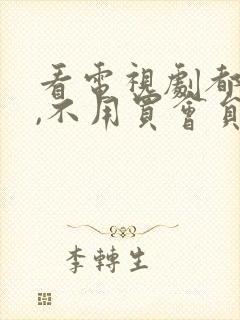 看電視劇都
,不用買會員
李轉生